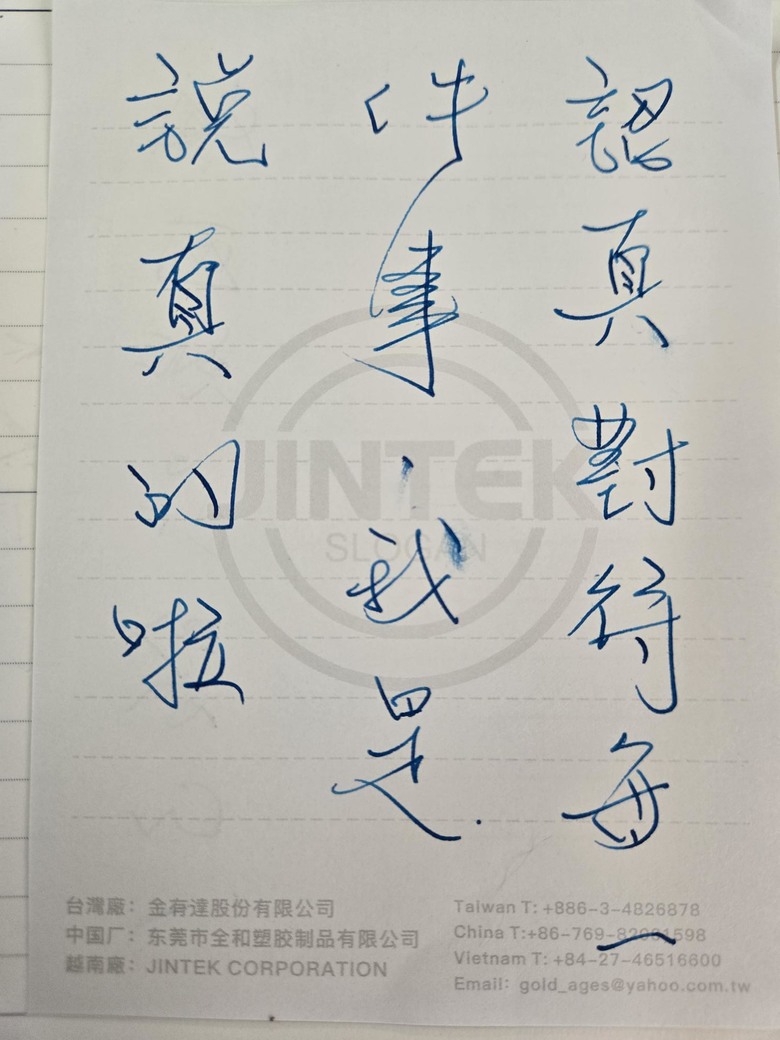 認真對待每一
件事，我是
說真的啦
JINTEK
SLOGAN
台灣廠：金有達股份有限公司
中国厂：东莞市全和塑胶制品有限公司
越南廠：JINTEK CORPORATION
Taiwan T: +886-3-4826878
China T:+86-769-82981598
Vietnam T: +84-27-46516600
Email: gold_ages@yahoo.com.tw